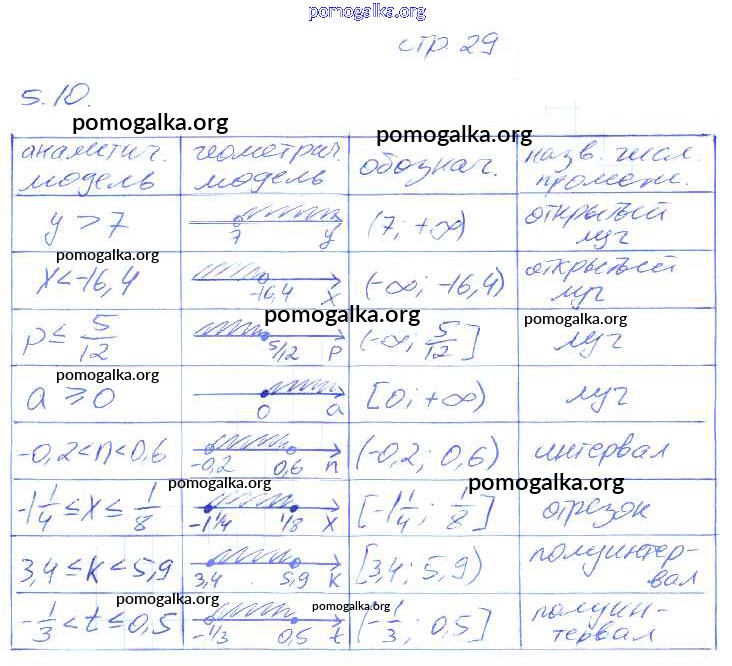 pomogalka.org
стр. 29
5.10.
pomogalka.org
pomogalka.org
аналитич. модель геометрич. модель обознач. назв. числ. промеж.
y > 7 7 y (7; +∞) открытый луч
pomogalka.org
x < -16,4 -16,4 x (-∞; -16,4) открытый луч
pomogalka.org pomogalka.org
p ≤ 5/12 5/12 p (-∞; 5/12] луч
pomogalka.org
a ≥ 0 0 a [0; +∞) луч
-0,2 < n < 0,6 -0,2 0,6 n (-0,2; 0,6) интервал
pomogalka.org pomogalka.org
-1 1/4 ≤ x ≤ 1/8 -1 1/4 1/8 x [-1 1/4; 1/8] отрезок
3,4 ≤ k < 5,9 3,4 5,9 k [3,4; 5,9) полуинтервал
pomogalka.org pomogalka.org
-1/3 < t ≤ 0,5 -1/3 0,5 t (-1/3; 0,5] полуин-
тервал